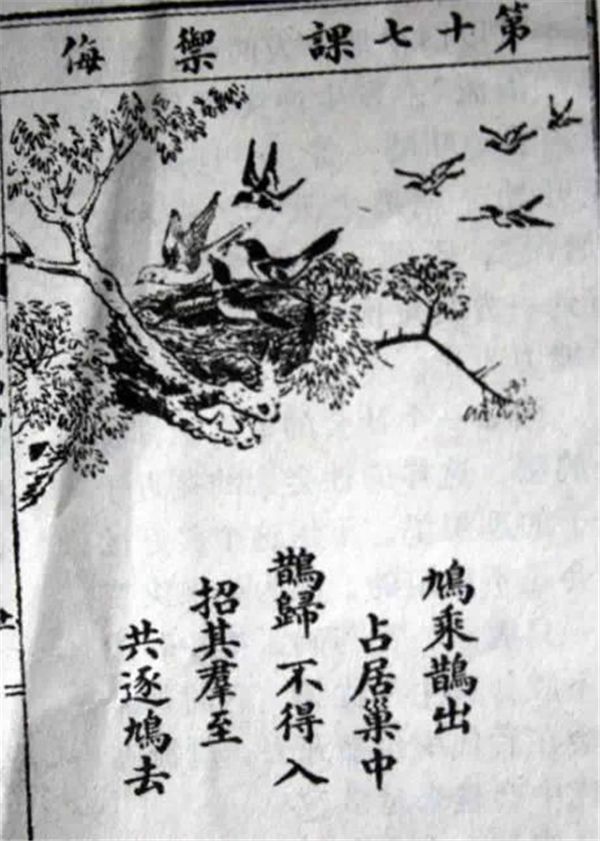 第十七課 禦侮
鳩乘鵲出
占居巢中
鵲歸 不得入
招其羣至
共逐鳩去